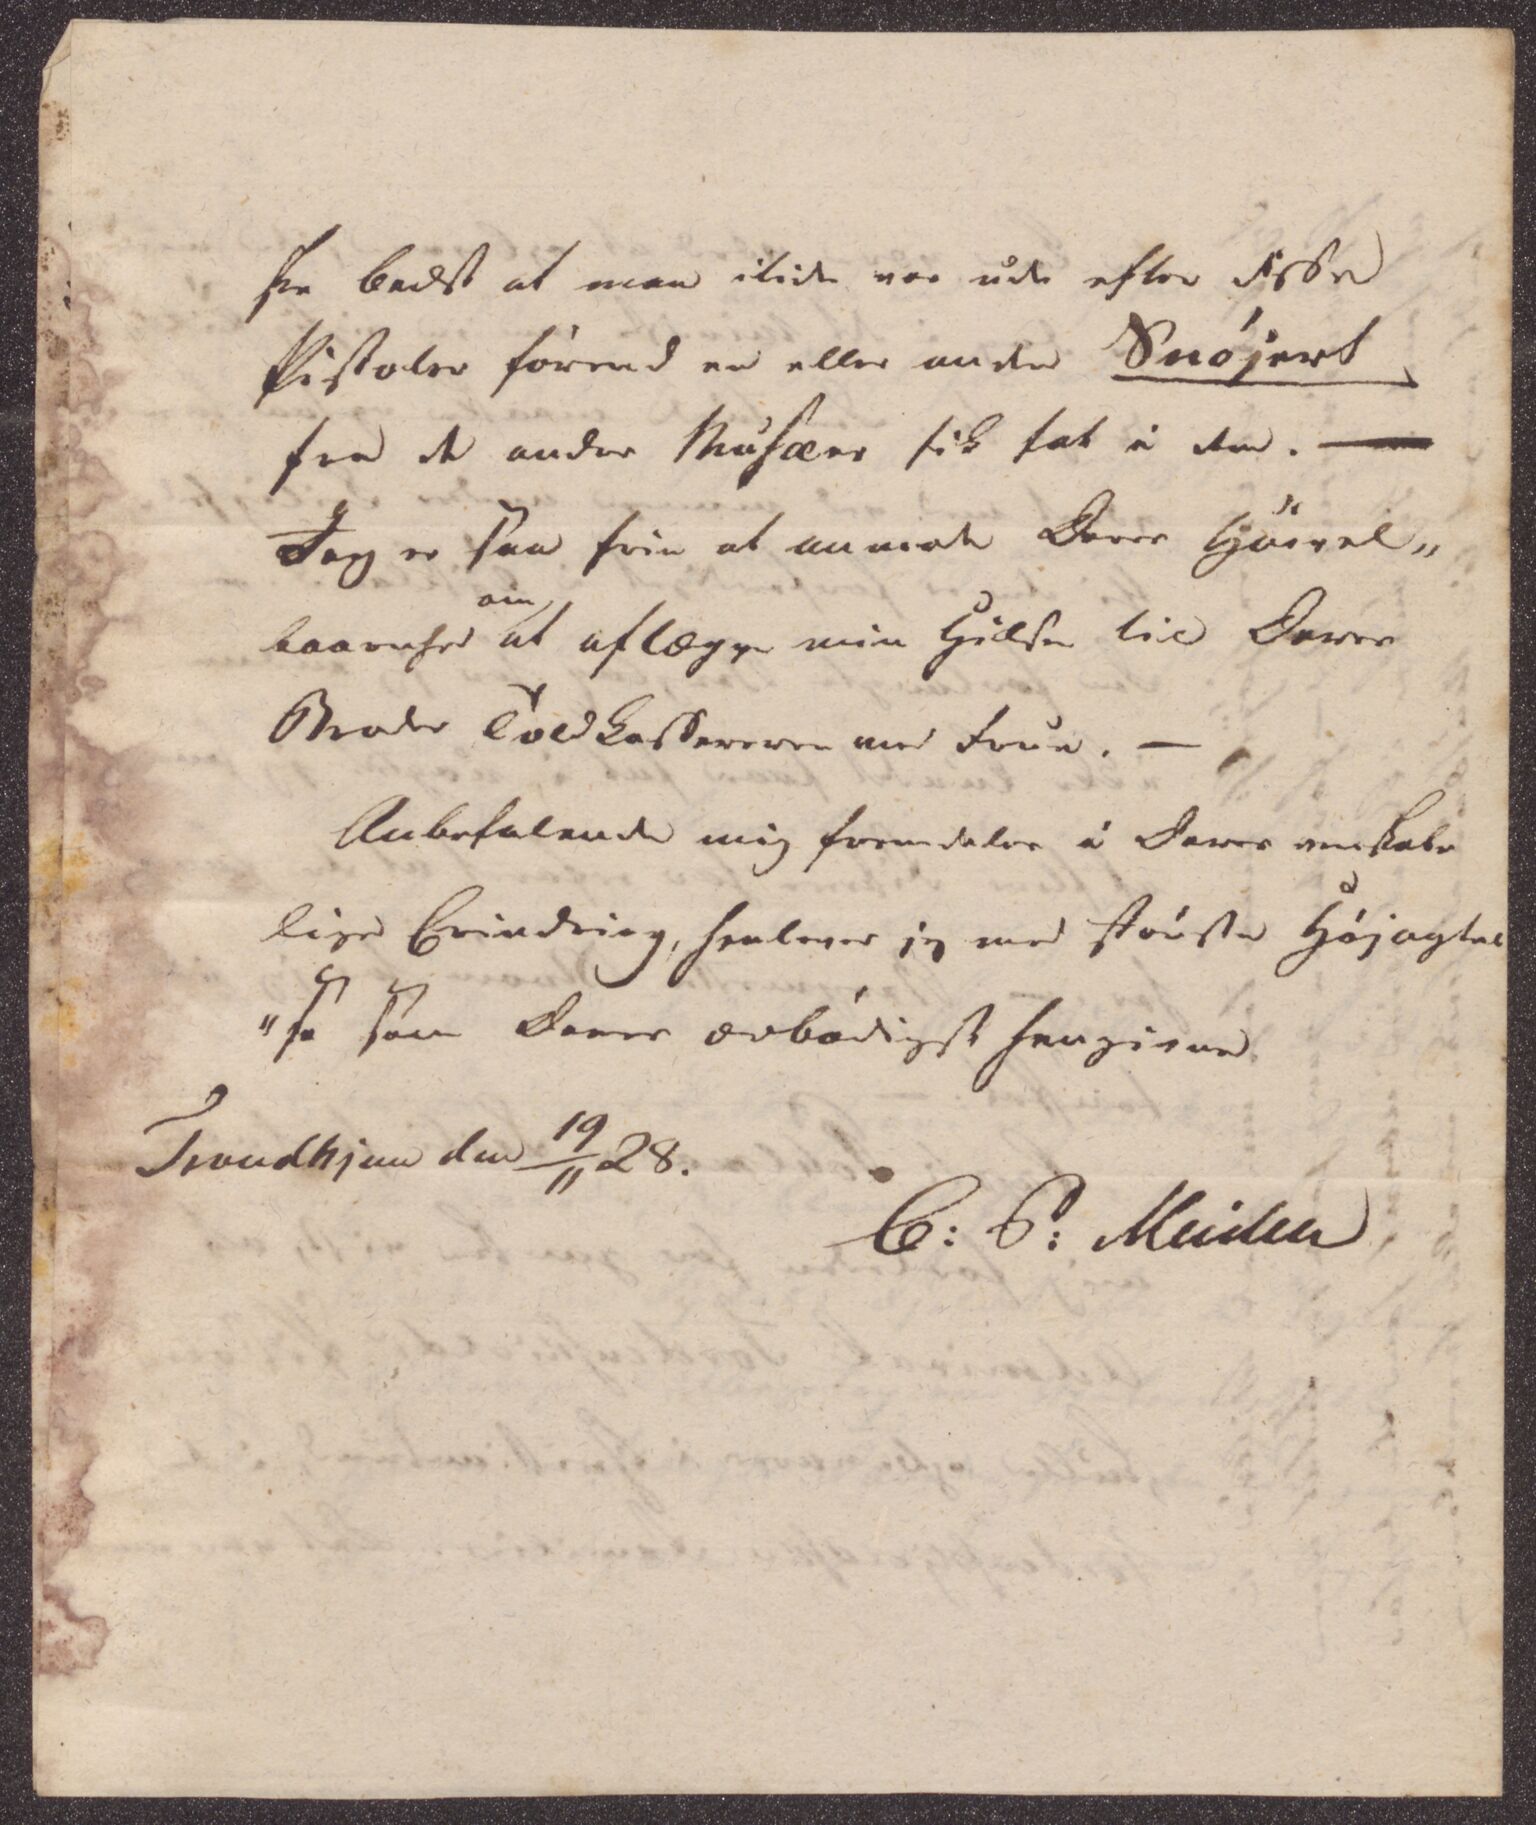 ske bedst at man itide var ude efter disse
Pistoler förend en eller anden Snöjert
fra de andre Musæer fik fat i dem. —
Jeg er saa frie at anmode Deres Höivel„
baarenhed om at aflægge min Hilsen til Deres
Broder Toldkassereren med Frue. —
Anbefalende mig fremdeles i Deres venskabe
lige Erindring, henlever jeg med störste Höjagtel
„se som Deres ærbödigst hengivne
Trondhjem den 19/11 28.
C: P: Meidell